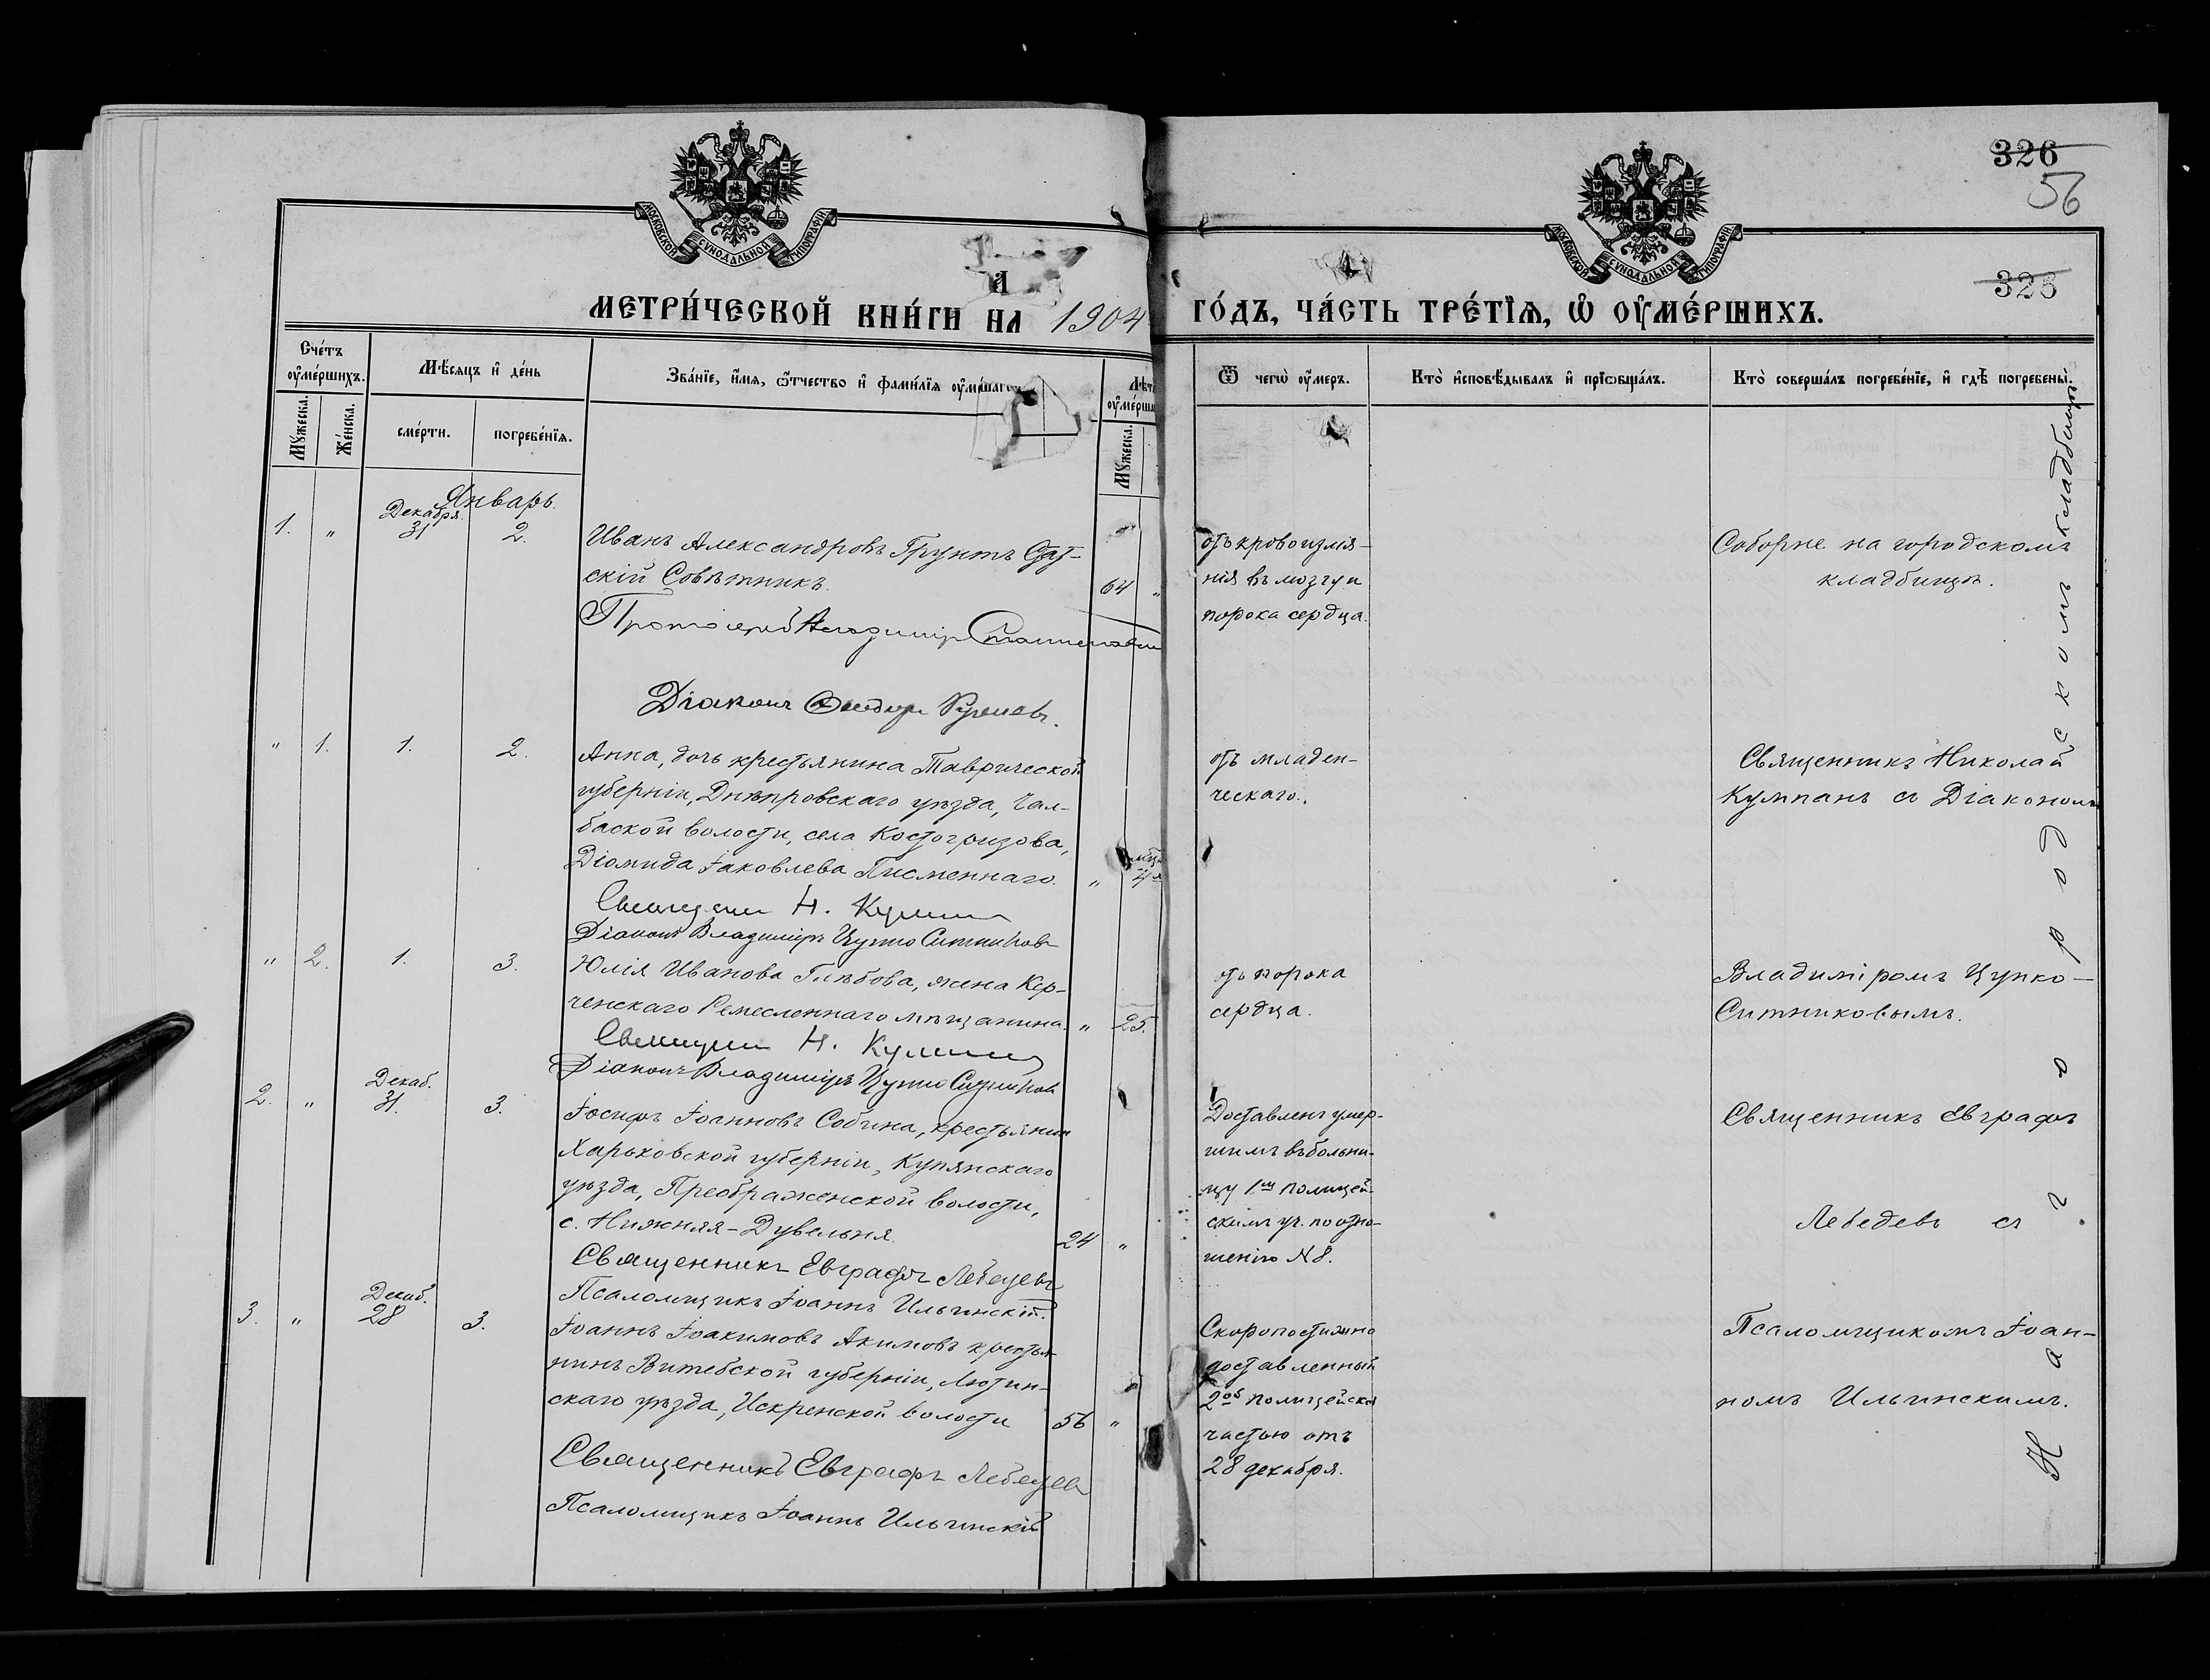 326
56
325
МОСКОВСКОЙ СУНОДАЛЬНОЙ ТИПОГРАФІИ
МОСКОВСКОЙ СУНОДАЛЬНОЙ ТИПОГРАФІИ
МЕТРИ́ЧЕСКОЙ КНИ́ГИ НА 1904 ГО́ДЪ, ЧА́СТЬ ТРЕ́ТІѦ, Ѡ҆ ОУ҆МЕ́РШИХЪ.
Сче́тъ оу҆ме́ршихъ.
Мꙋ́жеска.
Же́нска.
Мѣ́сяцъ и҆ де́нь
сме́рти.
погребе́нїѧ.
Зва́нїе, и҆́мѧ, ѻ҆́тчество и҆ фами́лїѧ оу҆ме́ршагѡ.
Лѣт
оу҆ме́рш
Мꙋ́жеска.
Ѿ чегѡ̀ оу҆́мер.
Кто̀ и҆сповѣ́дывалъ и҆ прїѡбща́лъ.
Кто̀ соверша́лъ погребе́нїе, и҆ гдѣ̀ погребены̀.
Январь.
1.
"
Декабря.
31
2.
Иванъ Александровъ Грунтъ Стат-
скій Совѣтникъ.
64
"
Протоіерей Владиміръ
Діаконъ Ѳеодоръ
отъ кровоизлія-
нія въ мозгу и
порока сердца.
Соборне на городскомъ
кладбищѣ.
"
1.
1.
2.
Анна, дочь крестьянина Таврической
губерніи, Днѣпровскаго уѣзда, Чал-
баской волости, села Костогризова,
Діомида Іаковлева Писменнаго.
"
4
Священникъ Н. Кумпанъ
Діаконъ Владиміръ Цупко Ситниковъ
отъ младен-
ческаго.
Священникъ Николай
Кумпанъ съ Діакономъ
"
2.
1.
3.
Юлія Иванова Глѣбова, жена Кер-
ченскаго Ремесленнаго мѣщанина.
"
25.
Священникъ Н. Кумпанъ
Діаконъ Владиміръ Цупко Ситниковъ
отъ порока
сердца.
Владиміромъ Цупко-
Ситниковымъ.
2.
"
Декаб.
31.
3.
Іосифъ Іоанновъ Собина, крестьянин
Харьковской губерніи, Купянскаго
уѣзда, Преображенской волости,
с. Нижняя-Дувельня.
24
"
Священникъ Евграфъ Лебедевъ
Псаломщикъ Іоаннъ Ильинскій.
Доставленъ умер-
шимъ въ больни-
цу 1ᵐ полицей-
скимъ уч. по отно-
шенію №8.
Священникъ Евграфъ
Лебедевъ съ
3.
"
Декаб.
28
3.
Іоаннъ Іоакимовъ Акимовъ крестья-
нинъ Витебской губерніи, Лютин-
скаго уѣзда, Искренской волости
56
"
Священникъ Евграфъ Лебедевъ
Псаломщикъ Іоаннъ Ильинскій
Скоропостижно
доставленный
2ᵒᵟ полицейской
частью отъ
28 декабря.
Псаломщикомъ Іоан-
номъ Ильинскимъ.
На городскомъ кладбищѣ